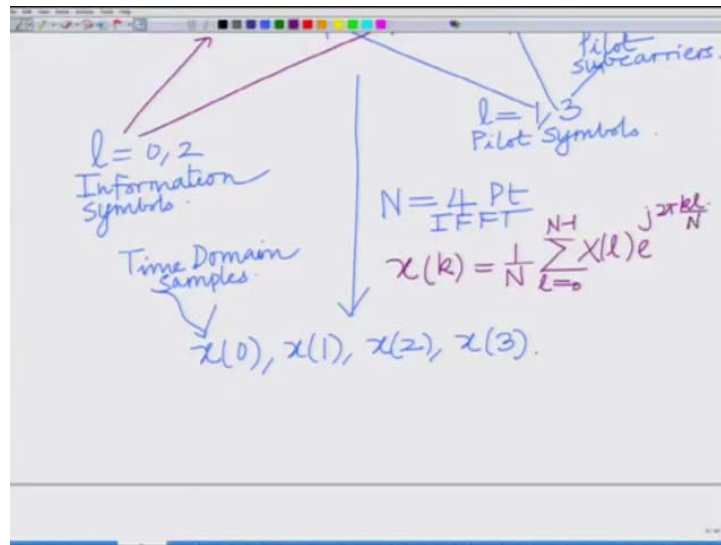 Pilot
subcarriers.
l = 1, 3
Pilot Symbols.
l = 0, 2
Information
Symbols.
N = 4 Pt
IFFT
x(k) = 1/N ∑_{l=0}^{N-1} X(l) e^{j2π kl/N}
Time Domain
Samples.
x(0), x(1), x(2), x(3).